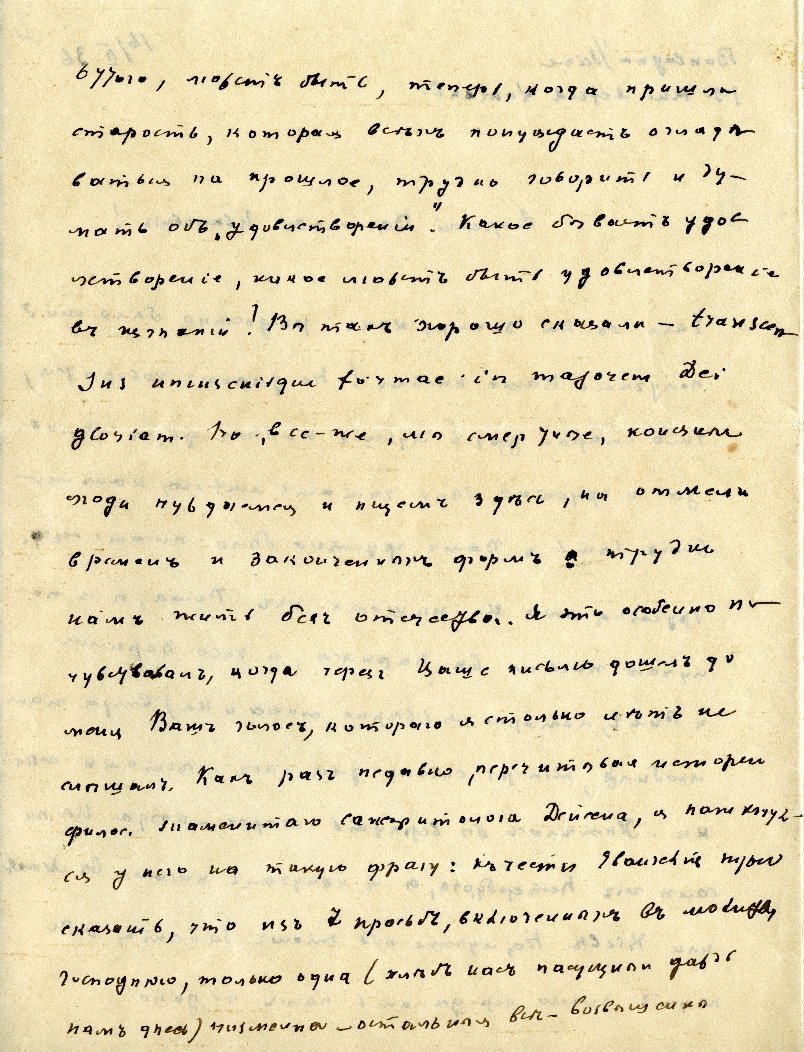 можетъ быть, теперь, когда пришла
старость, которая всѣхъ понуждаетъ огляды-
ваться на прошлое, трудно говорить и ду-
мать объ „удовлетвореніи“. Какое бываетъ удов
летвореніе, какое можетъ быть удовлетвореніе
въ изгнаніи! Вы такъ хорошо сказали — transcen
sus uniuscuiusque formae in majorem Dei
gloriam. Но, все-же, мы смертные,
люди нуждаемся и ищемъ здѣсь, на отмели
временъ и законченныхъ формъ и трудно
намъ жить безъ отечества. Я это особенно по-
чувствовалъ, когда черезъ Ваше письмо дошелъ до
меня Вашъ голосъ, котораго я столько лѣтъ не
слышалъ. Какъ разъ недавно, перечитывая исторію
филос. знаменитаго санскритолога Дейсена, я наткнул-
ся у него на такую фразу: къ чести Евангелія нужно
сказать, что изъ 7 просьбъ, включенныхъ въ молитву
Господню, только одна (хлѣбъ нашъ насущный даждь
намъ днесь) низменна — остальныя всѣ — возвышенны